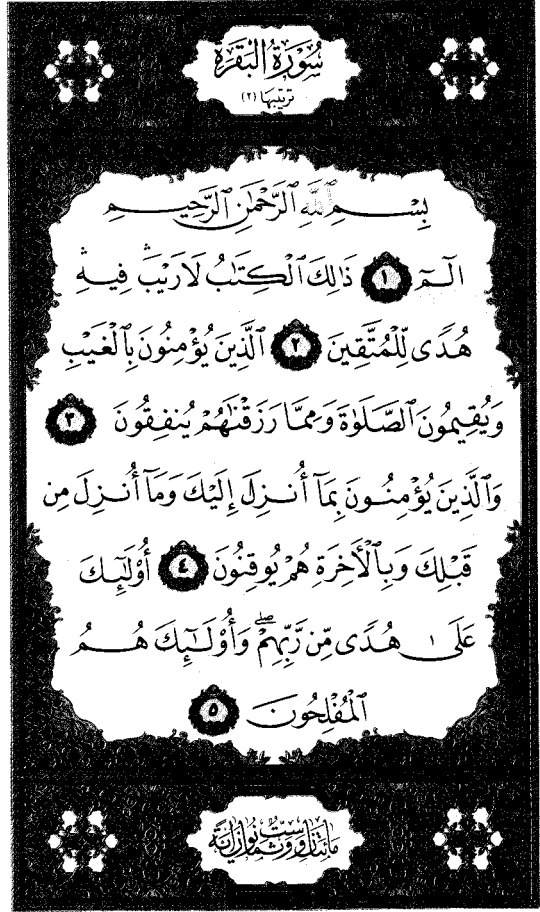 سُورَةُ البَقَرَةِ
ترتيبها (٢)
بِسْمِ ٱللَّهِ ٱلرَّحْمَٰنِ ٱلرَّحِيمِ
الٓمٓ ١ ذَٰلِكَ ٱلْكِتَٰبُ لَا رَيْبَ ۛ فِيهِ ۛ
هُدًى لِّلْمُتَّقِينَ ٢ ٱلَّذِينَ يُؤْمِنُونَ بِٱلْغَيْبِ
وَيُقِيمُونَ ٱلصَّلَوٰةَ وَمِمَّا رَزَقْنَٰهُمْ يُنفِقُونَ ٣
وَٱلَّذِينَ يُؤْمِنُونَ بِمَآ أُنزِلَ إِلَيْكَ وَمَآ أُنزِلَ مِن
قَبْلِكَ وَبِٱلْأَخِرَةِ هُمْ يُوقِنُونَ ٤ أُوْلَٰٓئِكَ
عَلَىٰ هُدًى مِّن رَّبِّهِمْ ۖ وَأُوْلَٰٓئِكَ هُمُ
ٱلْمُفْلِحُونَ ٥
مائتان وست وثمانون آية